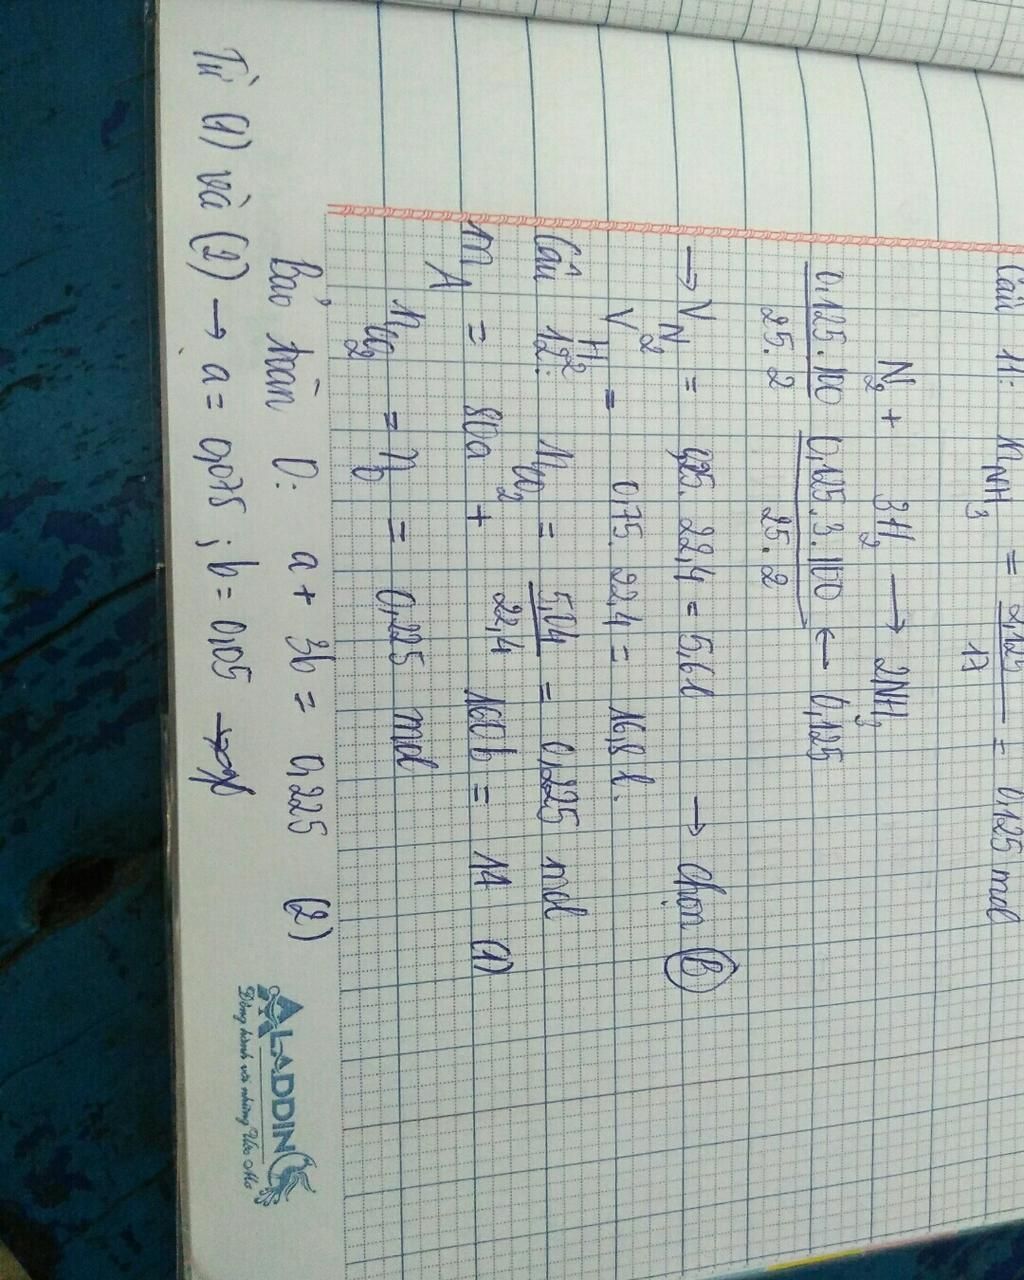 Câu 11: nNH3 = 2,125/17 = 0,125 mol
N2 + 3H2 → 2NH3
0,125.100/25.2 0,125.3.100/25.2 ← 0,125
→ VN2 = 0,25. 22,4 = 5,6 l → chọn B
VH2 = 0,75. 22,4 = 16,8 l.
Câu 12: nCO2 = 5,04/22,4 = 0,225 mol
mA = 80a + 160b = 14 (1)
nCO2 = nO = 0,225 mol
Bảo toàn O: a + 3b = 0,225 (2)
Từ (1) và (2) → a = 0,075 ; b = 0,05
ALADDIN
Đồng hành với những Ước Mơ